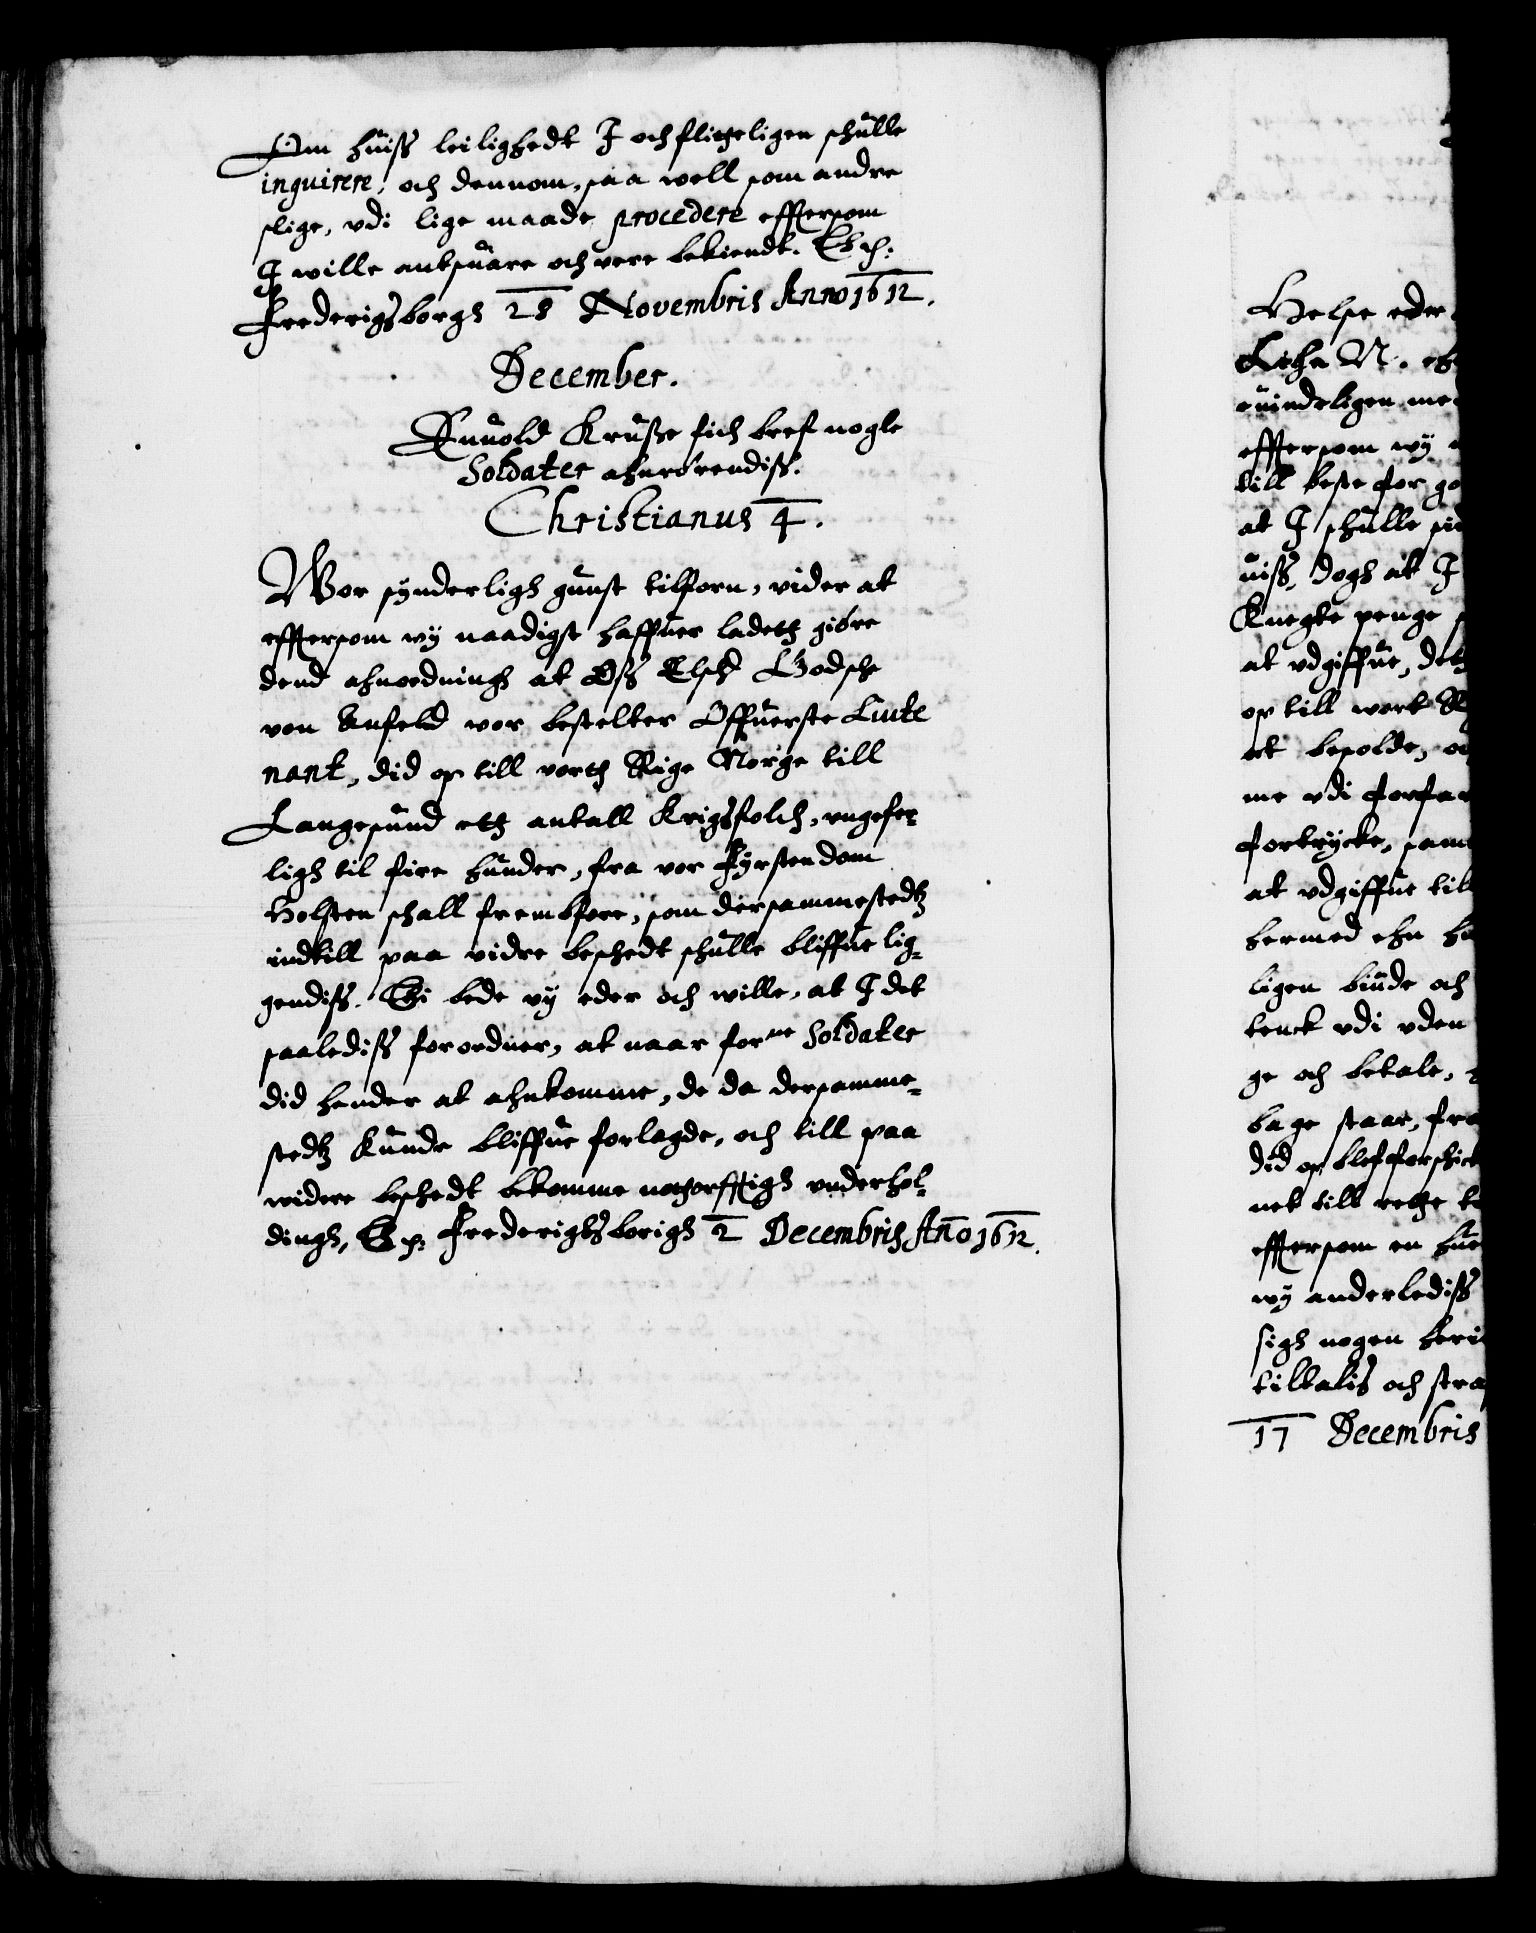 Om huiss leilighedt I och flitteligen schulle
inquirere, och dennom, saa well som andre
slige, vdi lige maade procedere effterson
I wille antsuare och vere bekiendt.
Frederigsborgh 28 Novembris Anno 1612.
December.
Enuold Krusse fich breff nogle
Soldater ahnrörendiss.
Christianus 4.
Wor synderligh gunst tilforn, vider at
effterson wÿ naadigst haffuer ladett giöre
dend ahnordningh at Oss Elsch Godsche
von Anfeld vor bestelter Offuerste Lüite
nant, did op till vortt Rige Norge till
Langesund ett antall Krigsfolch, vngefer-
ligh til fire hunder, fra vor Fÿrstendom
Holsten schall frembföre, som dersammestedtz
indtill paa vidre beschedt schulle bliffue lig-
gendiss. Thi bede vÿ eder och wille, at I det
saalediss forordner, at naar forne Soldater
did hender at ahnkomme, de da dersamme-
stedtz kunde bliffue forlagde, och till paa
widere beschedt bekomme nottorfftigh vnderhol-
dingh, Frederigsborigh 2 Decembris Ano 1612.
Helse eder
Lethe M.
euindeligen me
effterson wÿ
till beste for go
at I schulle
uiss, dogh at I
Knegte penge
at vdgiffue, det
op till wort
et besolde,
me vdi forfar
fortrycke, sam
at vdgiffue till
hermed ehn
ligen biude och
tenck vdi vden
ge och betale,
bage staar, fra
did op bleff forschick
net till rette
effterson en hue
wÿ anderlediss
sigh nogen heri
tiltalis och stra
17 Decembris